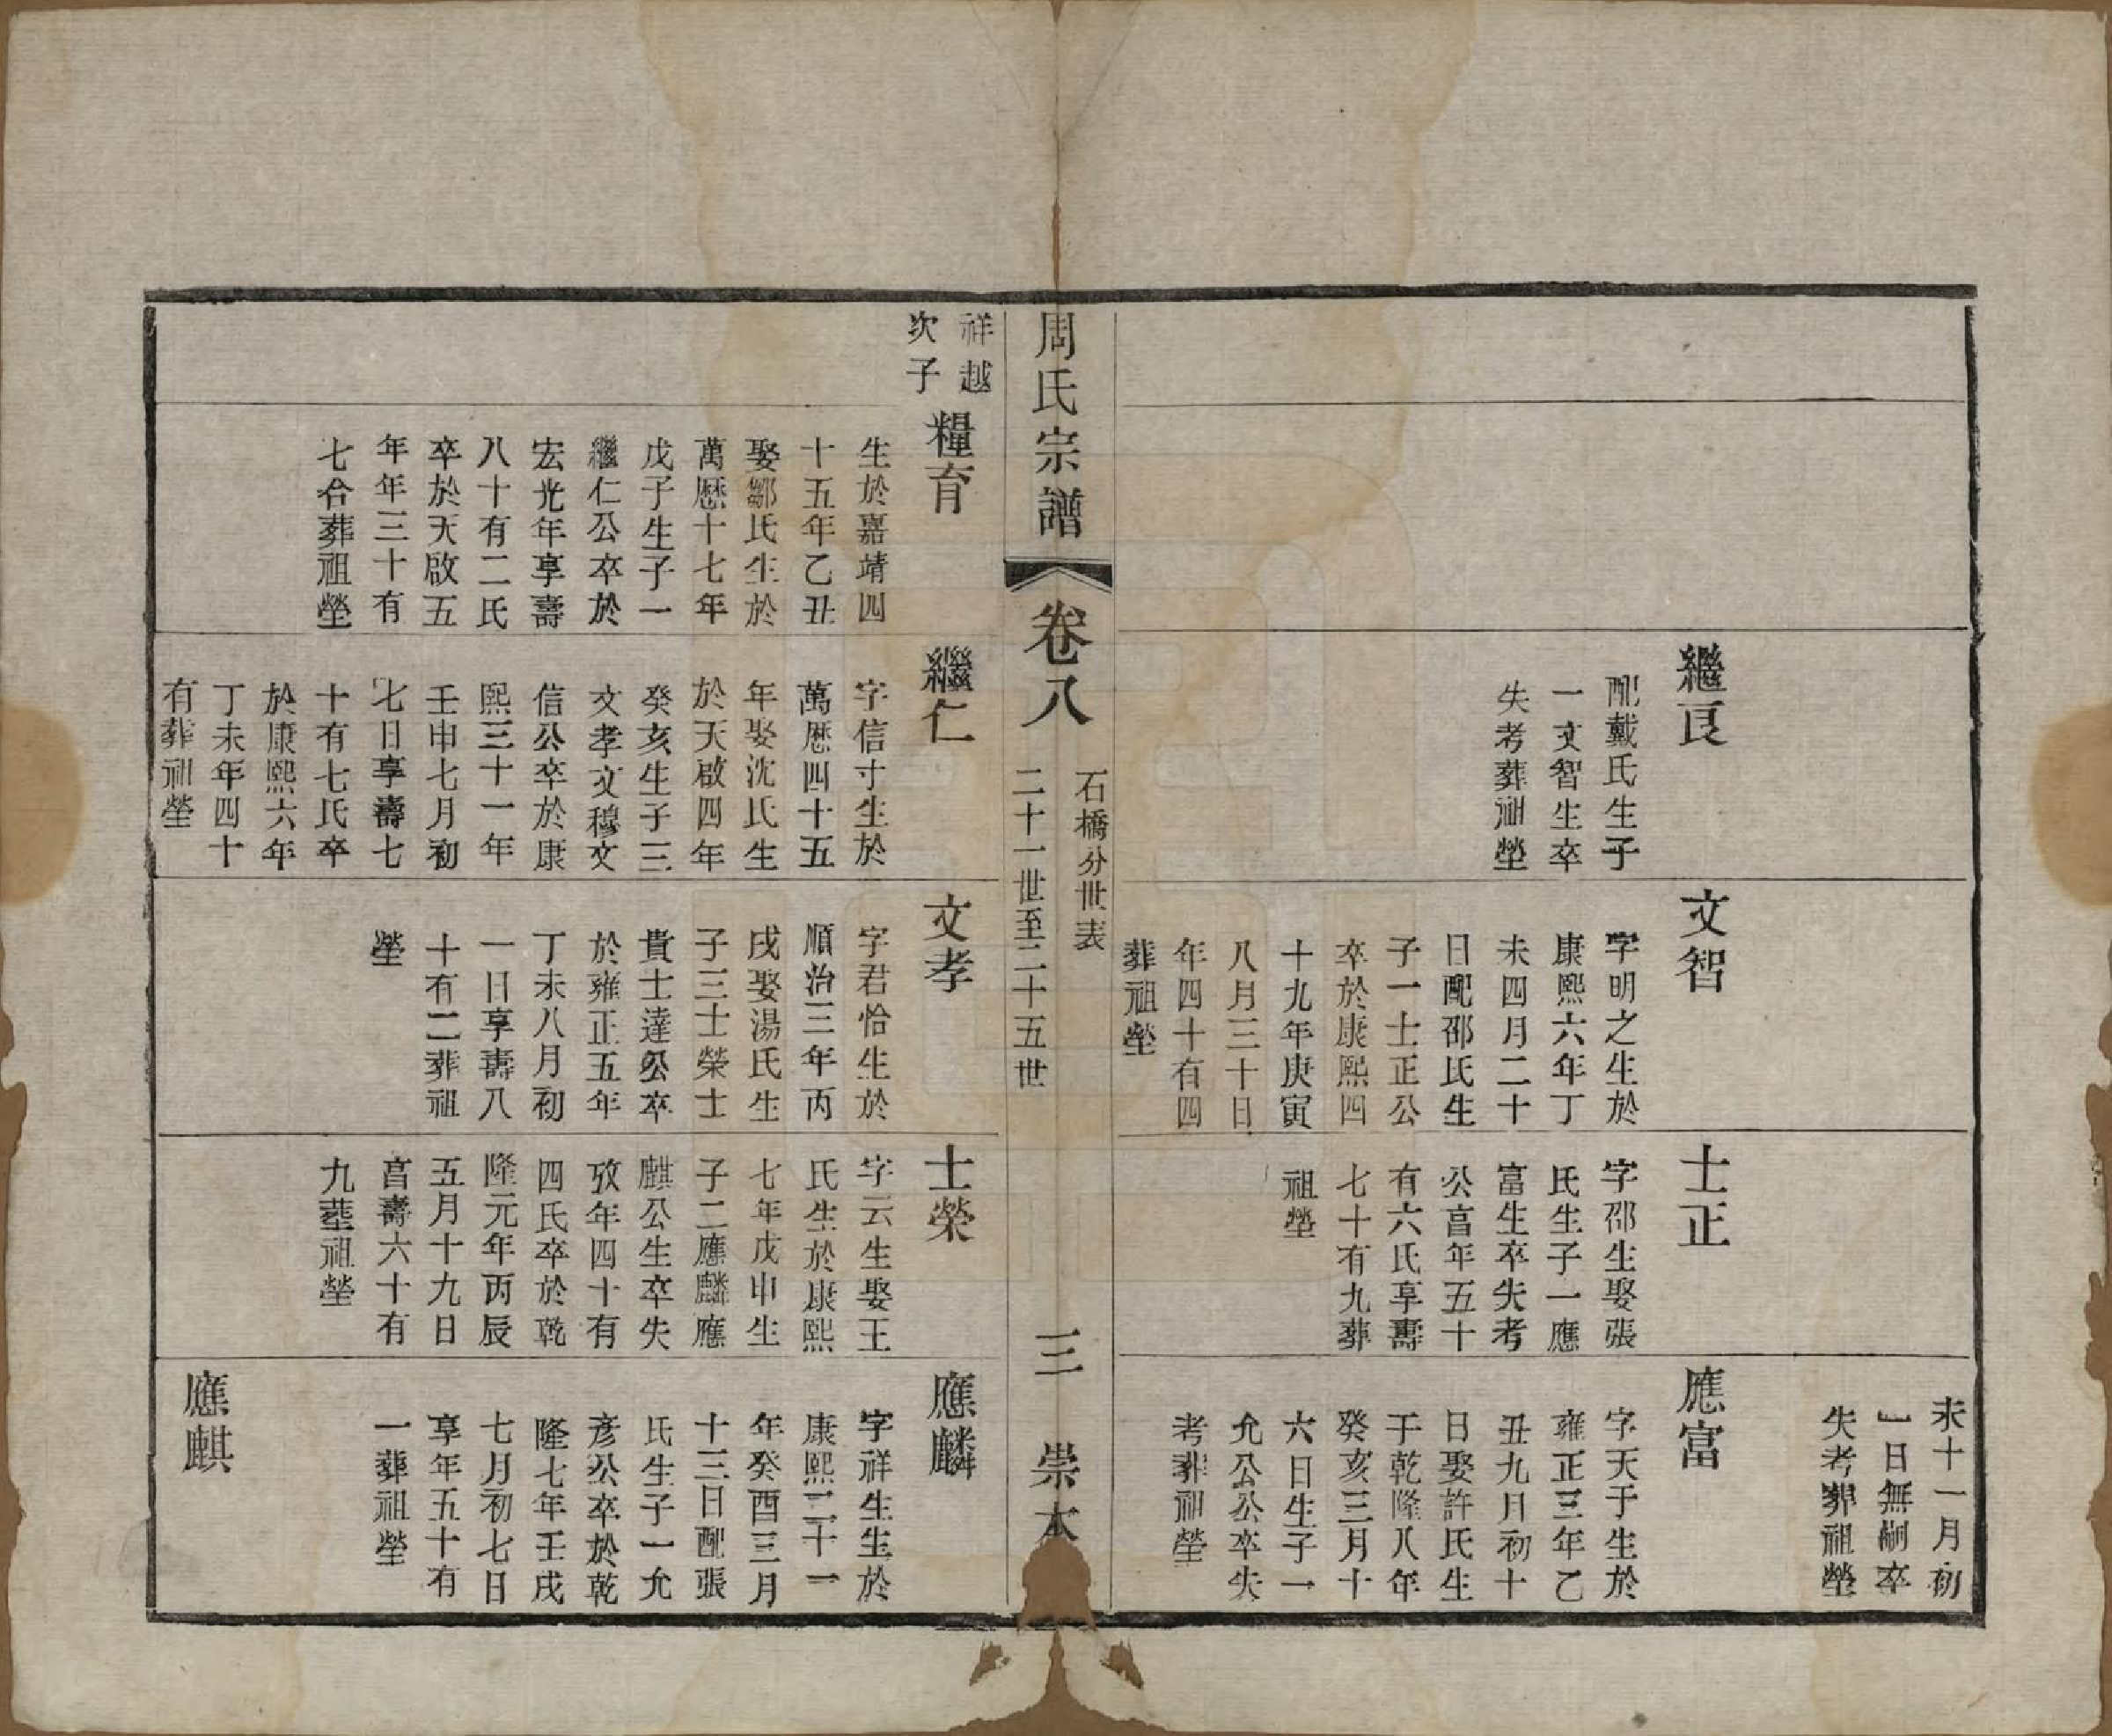 繼良
配戴氏生子
一文智生卒
失考葬祖塋
文智
字明之生於
康熙六年丁
未四月二十
日配邵氏生
子一士正公
卒於康熙四
十九年庚寅
八月三十日
年四十有四
葬祖塋
士正
字邵生娶張
氏生子一應
富生卒失考
公亯年五十
有六氏享壽
七十有九葬
祖塋
未十一月初
一日無嗣卒
失考葬祖塋
應富
字天于生於
雍正三年乙
丑九月初十
日娶許氏生
于乾隆八年
癸亥三月十
六日生子一
允公公卒失
考葬祖塋
周氏宗譜
卷八
石橋分世表
二十一世至二十五世
三
崇本
祥越
次子
糧育
生於嘉靖四
十五年乙丑
娶鄒氏生於
萬厯十七年
戊子生子一
繼仁公卒於
宏光年享壽
八十有二氏
卒於天啟五
年年三十有
七合葬祖塋
繼仁
字信寸生於
萬厯四十五
年娶沈氏生
於天啟四年
癸亥生子三
文孝文穆文
信公卒於康
熙三十一年
壬申七月初
七日享壽七
十有七氏卒
於康熙六年
丁未年四十
有葬祖塋
文孝
字君恰生於
順治三年丙
戌娶湯氏生
子三士榮士
貴士達公卒
於雍正五年
丁未八月初
一日享壽八
十有二葬祖
塋
士榮
字云生娶王
氏生於康熙
七年戊申生
子二應麟應
麒公生卒失
攷年四十有
四氏卒於乾
隆元年丙辰
五月十九日
亯壽六十有
九塟祖塋
應麟
字祥生生於
康熙三十一
年癸酉三月
十三日配張
氏生子一允
彥公卒於乾
隆七年壬戌
七月初七日
享年五十有
一葬祖塋
應麒